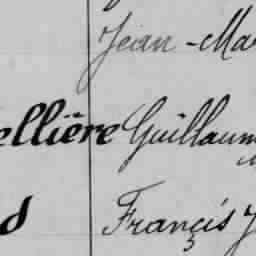 Jean-Ma
ellière Guillaum
d Françis J